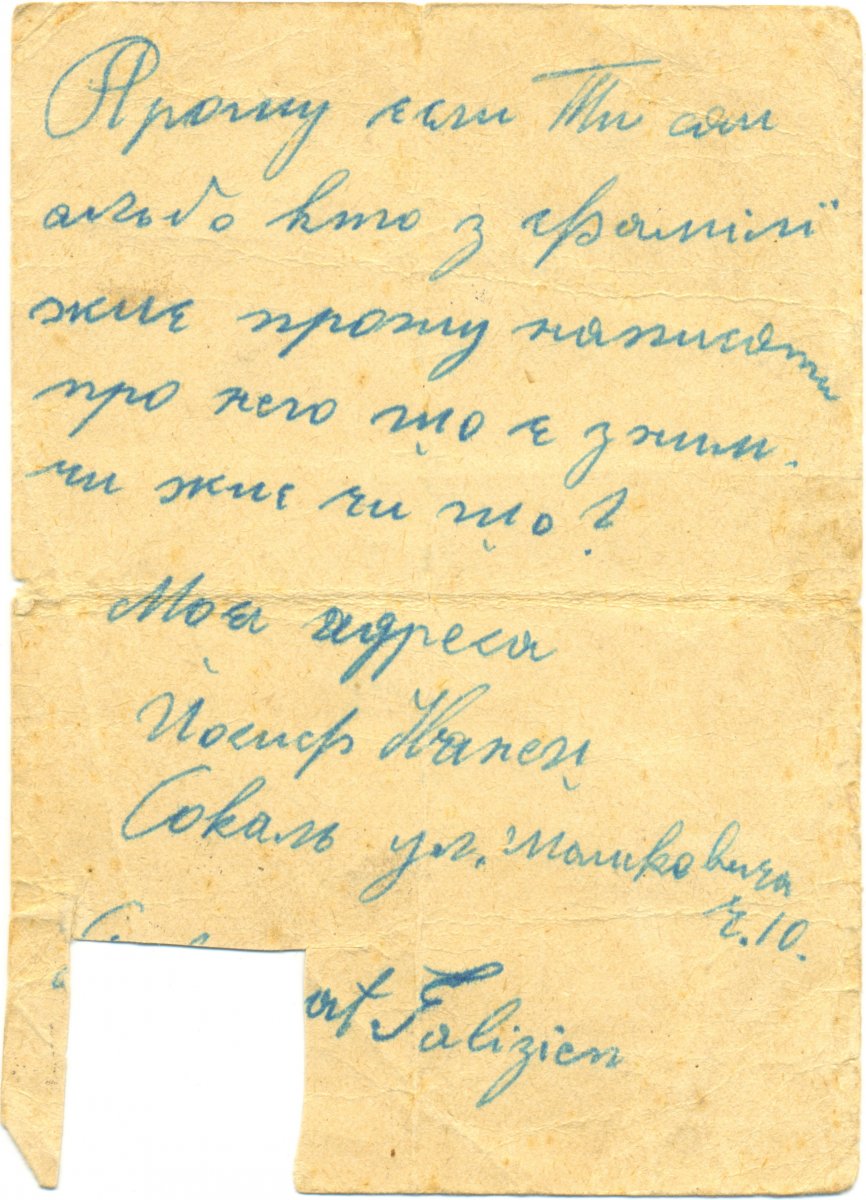 Прошу если Ти сам
альбо кто з фамілиї
жиє прошу написати
про него що є з ним.
чи жиє чи що?
Моя адреса
Йосиф
Сокаль ул. Машкевича
ч. 10.
at Galizien